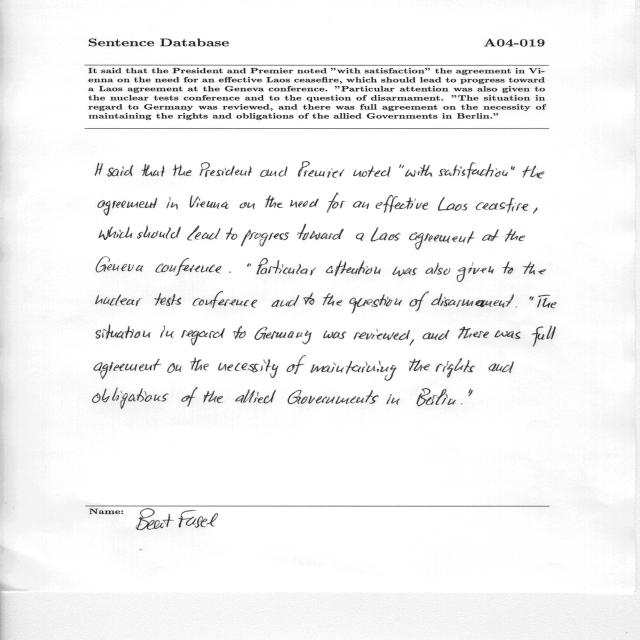 Sentence Database A04-019
It said that the President and Premier noted "with satisfaction" the agreement in Vi-
enna on the need for an effective Laos ceasefire, which should lead to progress toward
a Laos agreement at the Geneva conference. "Particular attention was also given to
the nuclear tests conference and to the question of disarmament. "The situation in
regard to Germany was reviewed, and there was full agreement on the necessity of
maintaining the rights and obligations of the allied Governments in Berlin."
It said that the President and Premier noted "with satisfaction" the
agreement in Vienna on the need for an effective Laos ceasfire,
which should lead to progress toward a Laos agreement at the
Geneva conference. "Particular attention was also given to the
nuclear tests conference and to the question of disarmament. "The
situation in regard to Germany was reviewed, and there was full
agreement on the necessity of maintaining the rights and
obligations of the allied Governments in Berlin."
Name: Beat Fasel